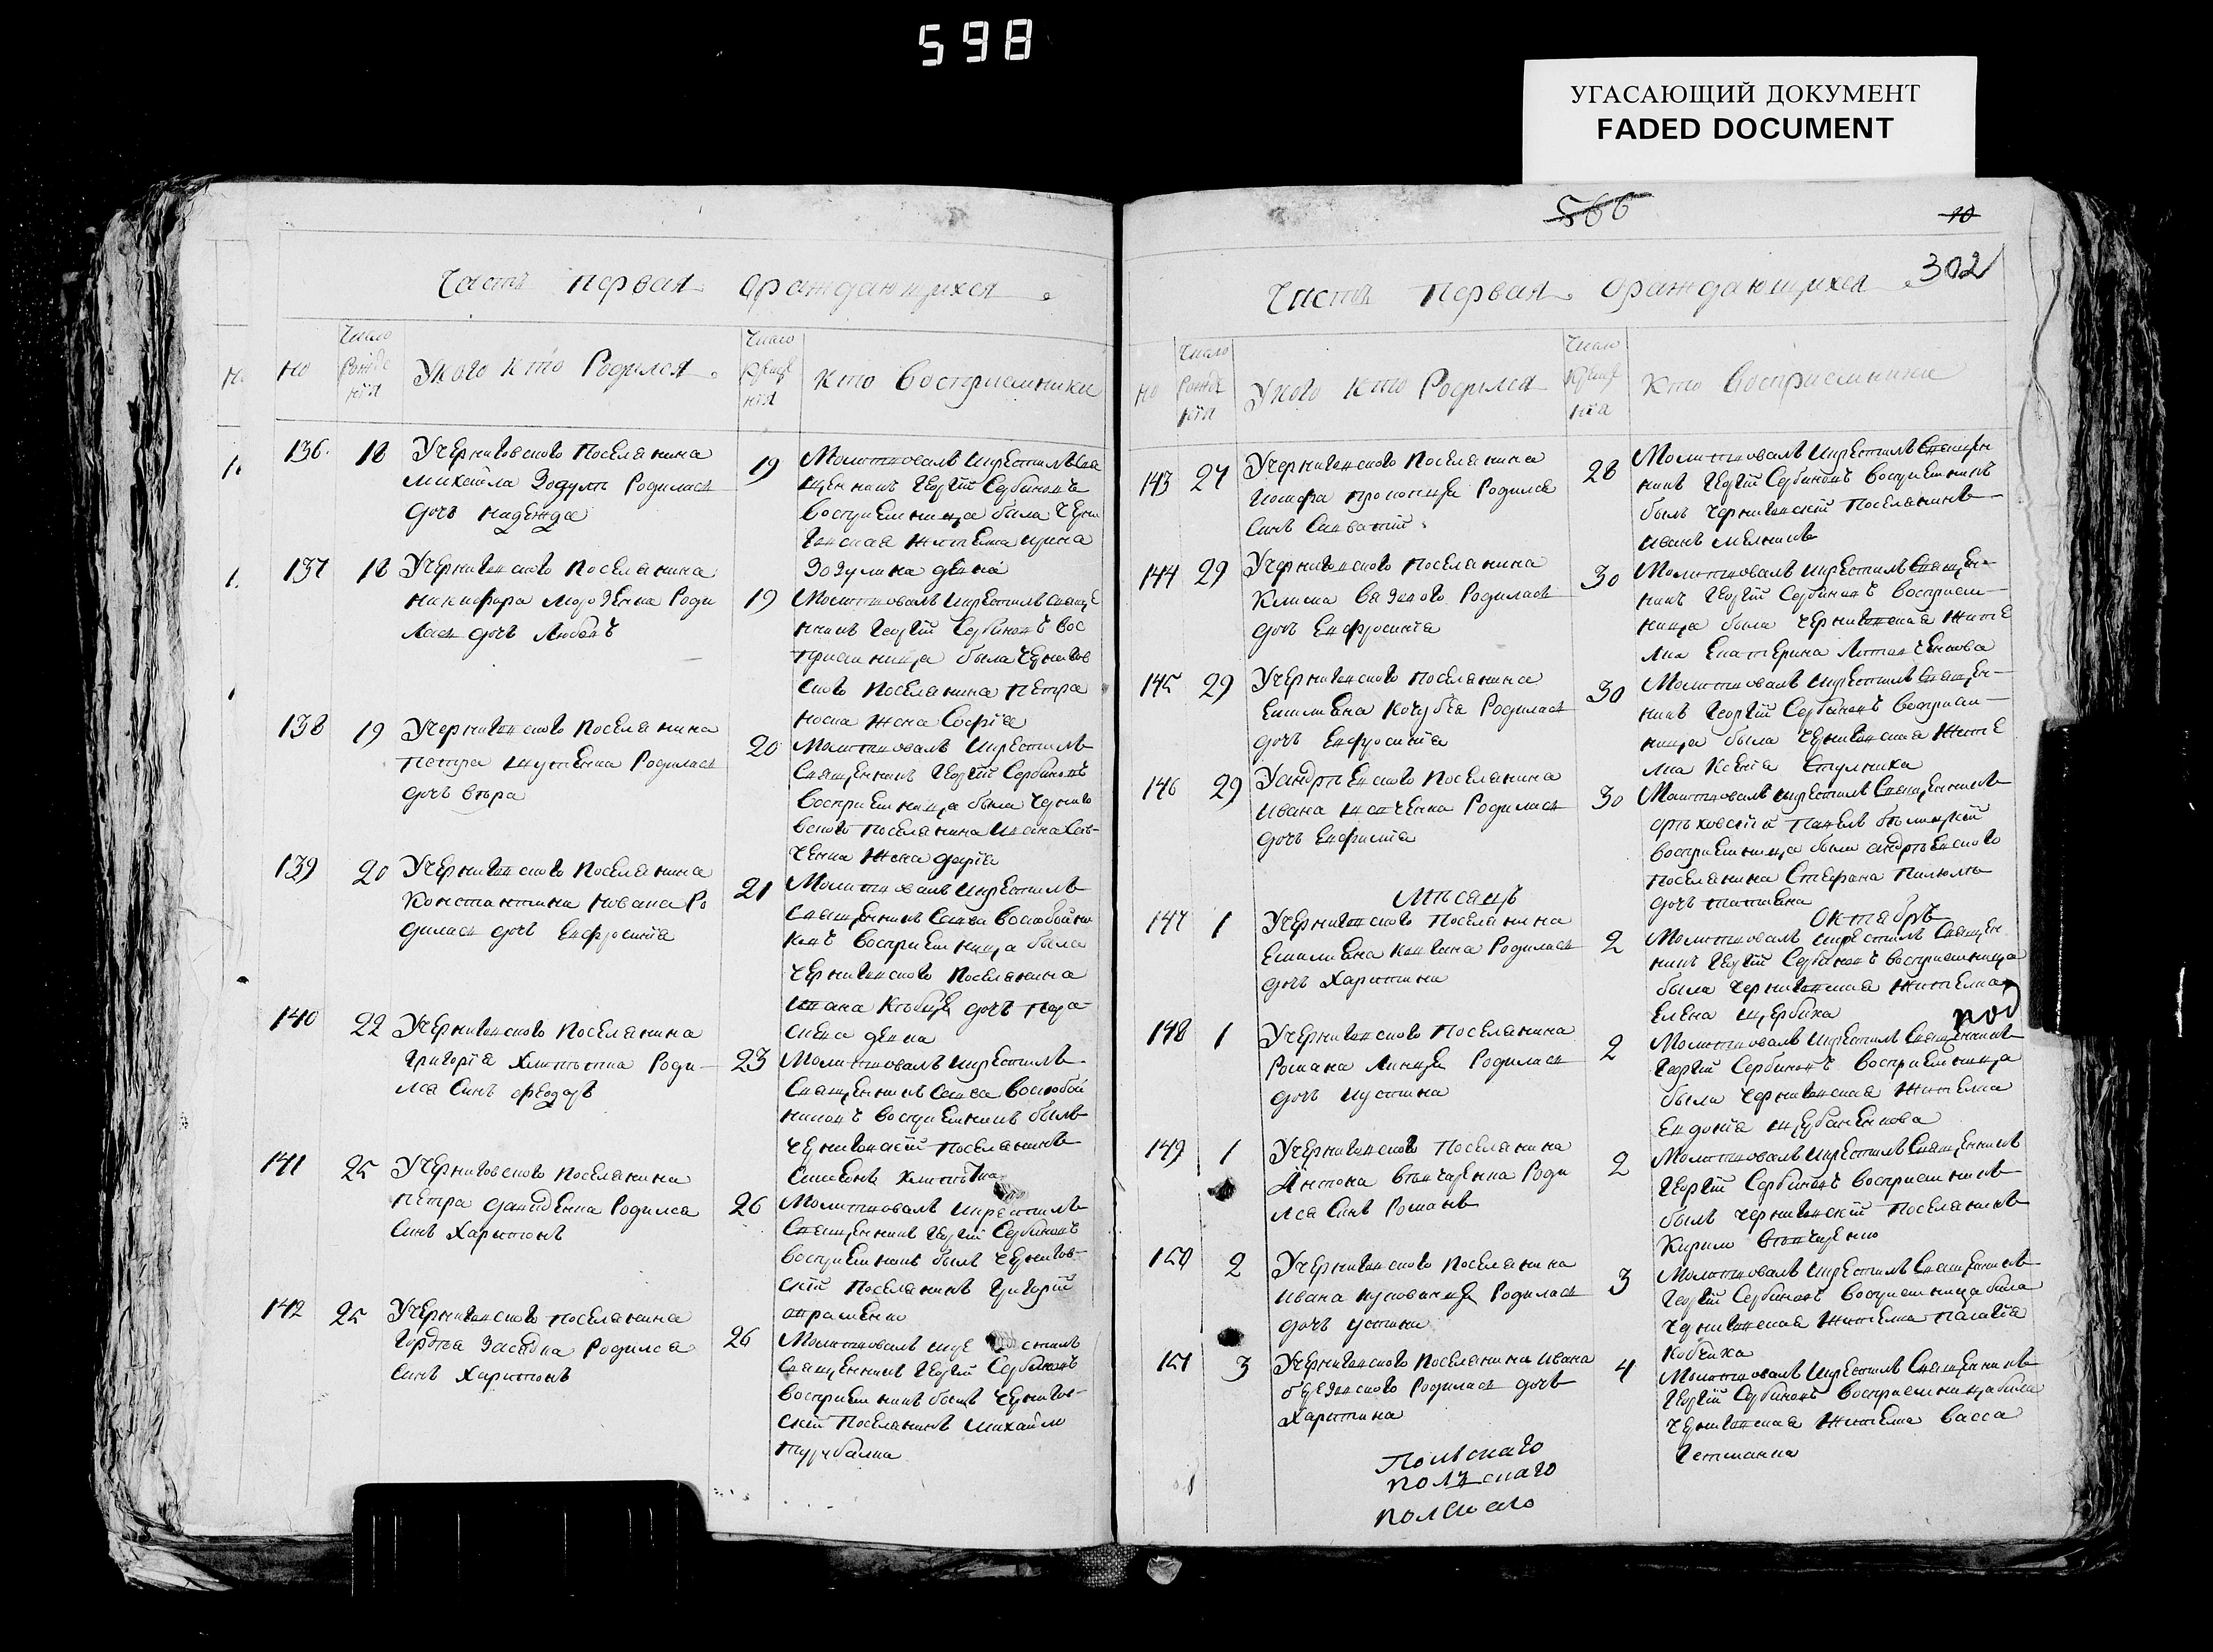 598
УГАСАЮЩИЙ ДОКУМЕНТ
FADED DOCUMENT
Часть первая ораждающихся
но
Число рожде нїя
У кого кто родился
Число креще нїя
кто восприемники
136. 18 У черниговского поселянина
михаила Зозули родилась
дочъ надежда
19 Молитвовалъ икрестилъ свя
щенникъ георгїй Сербиновъ
восприемница была черни
говская жителка ирина
Зозулина девка
137 18 У черниговского поселянина
никифора морозенка роди
лась дочъ Любовъ
19 Молитвовалъ икрестилъ свяще
нникъ георгїй Сербиновъ вос
приемница была чернигов
ского поселянина петра
носа жена Софїя
138 19 У черниговского поселянина
петра шутенка родилась
дочъ вѣра
20 Молитвовалъ икрестилъ
священникъ георгїй Сербиновъ
восприемница была черниго
вского поселянина ивана
ченка жена
139 20 У черниговского поселянина
Константина но­вака ро
дилась дочъ Евфросинїя
21 Молитвовалъ икрестилъ
священникъ Савва воскобойни
ковъ восприемница была
черниговского поселянина
ивана дочъ пара
скева девка
140 22 У черниговского поселянина
григорїя Роди
лся синъ феодоръ
23 Молитвовалъ икрестилъ
священникъ Савва воскобой
никовъ восприемникъ былъ
черниговскїй поселянинъ
Симеонъ
141 25 У черниговского поселянина
петра давиденка родился
синъ Харитонъ
26 Молитвовалъ икрестилъ
священникъ георгїй Сербиновъ
восприемникъ былъ чернигов
скїй поселянинъ григорїй
авраменко
142 25 У черниговского поселянина
гордѣя родился
синъ Харитонъ
26 Молитвовалъ икре стилъ
священникъ георгїй Сербиновъ
восприемникъ былъ чернигов
скїй поселянинъ михайло
566
10
302
Часть первая ораждающихся
но
Число рожде нїя
У кого кто родился
Число креще нїя
кто восприемники
143 27 У черниговского поселянина
иосифа прокопця родился
синъ Савватїй
28 Молитвовалъ икрестилъ священ
никъ георгїй Сербиновъ восприемникъ
былъ черниговскїй поселянинъ
иванъ мелникъ
144 29 У черниговского поселянина
Клима родилась
дочъ Евфросинїя
30 Молитвовалъ икрестилъ священ
никъ георгїй Сербиновъ восприем
ница была черниговская жите
лка Екатерина Литовченкова
145 29 У черниговского поселянина
Емилиана кочубея родилась
дочъ Евфросинїя
30 Молитвовалъ икрестилъ священ
никъ георгїй Сербиновъ восприем
ница была черниговская жите
лка Ксенїя
146 29 У андрѣевского поселянина
ивана родилась
дочъ Евфимїя
30 Молитвовалъ икрестилъ священникъ
орѣховскїй павелъ бѣлицкїй
восприемница была андрѣевского
поселянина Стефана
дочъ татїана
мѣсяцъ октябръ
147 1 У черниговского поселянина
Емилиана родилась
дочъ Харитина
2 Молитвовалъ икрестилъ священ
никъ георгїй Сербиновъ восприемница
была черниговская жителка
Елена щербиха
под
148 1 У черниговского поселянина
Романа родилась
дочъ иустина
2 Молитвовалъ икрестилъ священникъ
георгїй Сербиновъ восприемница
была черниговская жителка
Евдокїя
149 1 У черниговского поселянина
Антона Роди
лся синъ Романъ
2 Молитвовалъ икрестилъ священникъ
георгїй Сербиновъ восприемникъ
былъ черниговскїй поселянинъ
Кирило
150 2 У черниговского поселянина
ивана родилась
дочъ устина
3 Молитвовалъ икрестилъ священникъ
георгїй Сербиновъ восприемница била
черниговская жителка палагїя
151 3 У черниговского поселянина ивана
березовского родилась дочъ
Харитина
4 Молитвовалъ икрестилъ священникъ
георгїй Сербиновъ восприемница била
черниговская жителка васса
гетманка